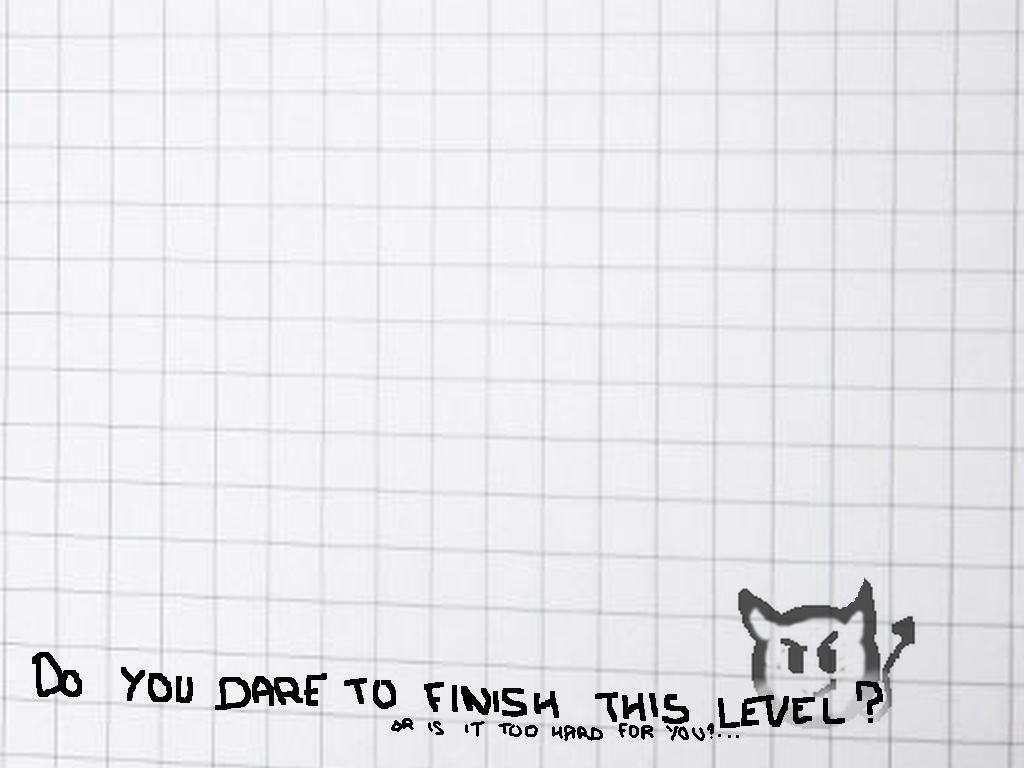 DO YOU DARE TO FINISH THIS LEVEL?
OR IS IT TOO HARD FOR YOU?...